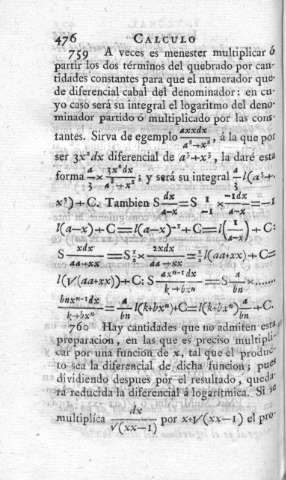 476 CALCULO
759 A veces es menester multiplicar ó
partir los dos términos del quebrado por can-
tidades constantes para que el numerador que-
de diferencial cabal del denominador : en cu-
yo caso será su integral el logaritmo del deno-
minador partido ó multiplicado por las cons-
tantes. Sirva de egemplo axxdx/(a³+x³), á la que por
ser 3x²dx diferencial de a³+x³, la daré esta
forma a/3 × 3x²dx/(a³+x³); y será su integral a/3 l(a³+
x³)+C. Tambien S dx/(a-x)=S 1/-1 × -1dx/(a-x)=-1
l(a-x)+C=l(a-x)⁻¹+C=l(1/(a-x))+C:
S xdx/(aa+xx)=S½× 2xdx/(aa+xx)=½l(aa+xx)+C=
l(√(aa+xx))+C: S axⁿ⁻¹dx/(k+bxⁿ)=S a/bn ×......
bnxⁿ⁻¹dx/(k+bxⁿ)=a/bn l(k+bxⁿ)+C=l(k+bxⁿ)^(a/bn)+C.
760 Hay cantidades que no admiten esta
preparacion, en las que es preciso multipli-
car por una funcion de x, tal que el produc-
to sea la diferencial de dicha funcion; pues
dividiendo despues por el resultado, queda-
rá reducida la diferencial á logarítmica. Si se
multiplíca dx/√(xx-1) por x+√(xx-1) el pro-